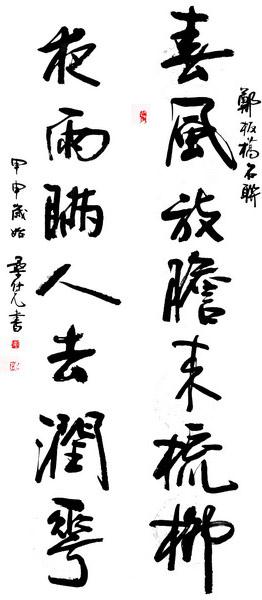 鄭板橋名聯
春風放膽來梳柳
夜雨瞞人去潤花
甲申歲始 書